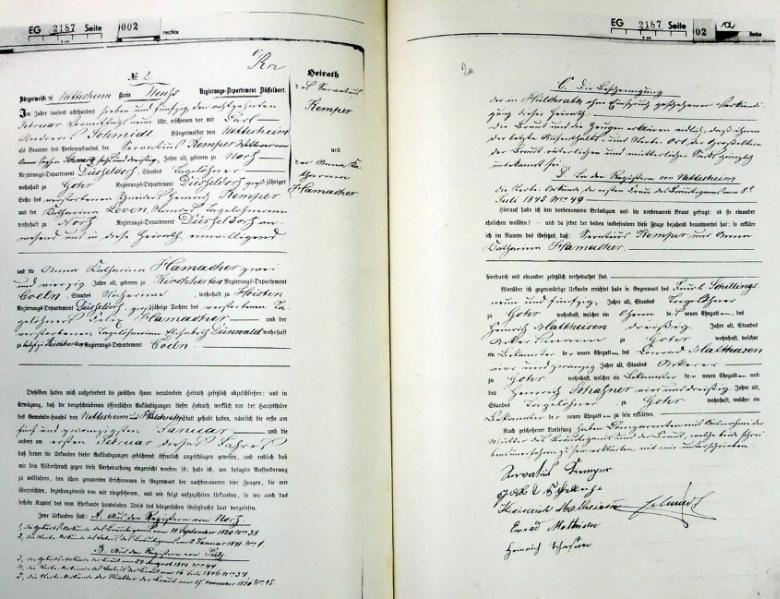 EG 2187 Seite 002
rechts
№ 2
Bürgermeisterei Nettesheim Kreis Neuss Regierungs-Departement Düsseldorf.
Heirath
des Servatius
Kemper
und
der Anna Ka-
tharina
Hamacher
Im Jahre tausend achthundert sieben und fünfzig, den achtzehnten
Februar Vormittags neun Uhr, erschienen vor mir Carl
Andreas Schmidt Bürgermeister von Nettesheim
als Beamten des Personenstandes, der Servatius Kemper Wittwer von
sechs und dreißig Jahre alt, geboren zu Norf
Regierungs-Departement Düsseldorf, Standes Tagelöhner
wohnhaft zu Gohr Regierungs-Departement Düsseldorf großjähriger
Sohn des verstorbenen Heinrich Kemper
und der Catharina Leven, Standes Tagelöhnerin
wohnhaft zu Norf Regierungs-Departement Düsseldorf an-
wesend und in diese Heirath einwilligend
und die Anna Katharina Hamacher zwei
und vierzig Jahre alt, geboren zu Regierungs-Departement
Coeln, Standes wohnhaft zu Hoisten
Regierungs-Departement Düsseldorf, großjährige Tochter des verstorbenen Ta-
gelöhners Hamacher und der
verstorbenen Tagelöhnerin Elisabeth Dünwald wohnhaft
zu Regierungs-Departement Coeln.
Dieselben haben mich aufgefordert die zwischen ihnen verabredete Heirath gesetzlich abzuschließen; und in
Erwägung, daß die vorgeschriebenen öffentlichen Ankündigungen dieser Heirath wirklich vor der Hauptthüre
des Gemeinde-Hauses zu Nettesheim Statt gehabt haben, nämlich die erste am
fünf und zwanzigsten Januar und die
andere am ersten Februar dieses Jahres
daß ferner die Urkunden dieser Ankündigungen gehörig öffentlich angeschlagen gewesen, und endlich daß
mir kein Widerspruch gegen diese Verheirathung eingereicht worden ist; habe ich, um besagter Aufforderung
zu willfahren, den schon genannten Erschienenen in Gegenwart der nachbenannten vier Zeugen, die mir
überreichten, beziehungsweise von mir eingesehenen, und wie folgt aufgezählten Urkunden, so wie auch das
sechste Kapitel des vom Ehestande handelnden Titels des bürgerlichen Gesetzbuchs laut vorgelesen.
Jene Urkunden sind: A. Aus den Registern von Norf
1, die Geburts-Urkunde des Bräutigams vom 11 September 1820 № 38
2, die Sterbe-Urkunde des Vaters des Bräutigams vom 2 Januar 1841 № 1.
B. Aus den Registern von
3, die Geburts-Urkunde der Braut vom 27 August № 44
4, die Sterbe-Urkunde des Vaters der Braut vom 16 Juli № 34
5, die Sterbe-Urkunde der Mutter der Braut vom 17 November № 95.
EG 2187 Seite 02
links
C. Die Bescheinigung
der an Hülchrath ohne Einspruch geschehenen Verkündi-
gung dieser Heirath.
Die Braut und die Zeugen erklären eidlich, daß ihnen
der letzte Aufenthalt und Sterbe Ort der Großeltern
der Braut väterlicher und mütterlicher Seits gänzlich
unbekannt sei.
D. In den Registern von Nettesheim
die Sterbe-Urkunde der ersten Frau des Bräutigams vom 8t
Juli 1845 № 49
Hierauf habe ich den vorbenannten Bräutigam und die vorbenannte Braut gefragt: ob sie einander
ehelichen wollen? und da jeder der beiden insbesondere diese Frage bejahend beantwortet hat: so erkläre
ich im Namen des Gesetzes, daß: Servatius Kemper und Anna
Katharina Hamacher
hierdurch mit einander gesetzlich verheirathet sind.
Worüber ich gegenwärtige Urkunde errichtet habe in Gegenwart des Schillings
neun und fünfzig Jahre alt, Standes Tagelöhner
zu Gohr wohnhaft, welcher ein Oheim der neuen Ehegatten, des
Heinrich Mattheisen dreißig Jahre alt, Standes
Ackersmann zu Gohr wohnhaft, welcher
ein Bekannter der neuen Ehegatten, des Conrad Mattheisen
vier und zwanzig Jahre alt, Standes Ackerer
zu Gohr wohnhaft, welcher ein Bekannter der neuen Ehegatten und
des Heinrich vier und dreißig Jahre alt,
Standes Tagelöhner zu Gohr wohnhaft, welcher ein
Bekannter der neuen Ehegatten zu sein erklärten.
Nach geschehener Vorlesung haben Comparenten mit Ausnahme der
Mutter des Bräutigams und der Braut, welche beide schrei-
bensunerfahren zu sein erklärten, mit mir unterschrieben
Servatius Kemper
Heinrich Matheisen Schmidt
Conrad Matheisen
Heinrich